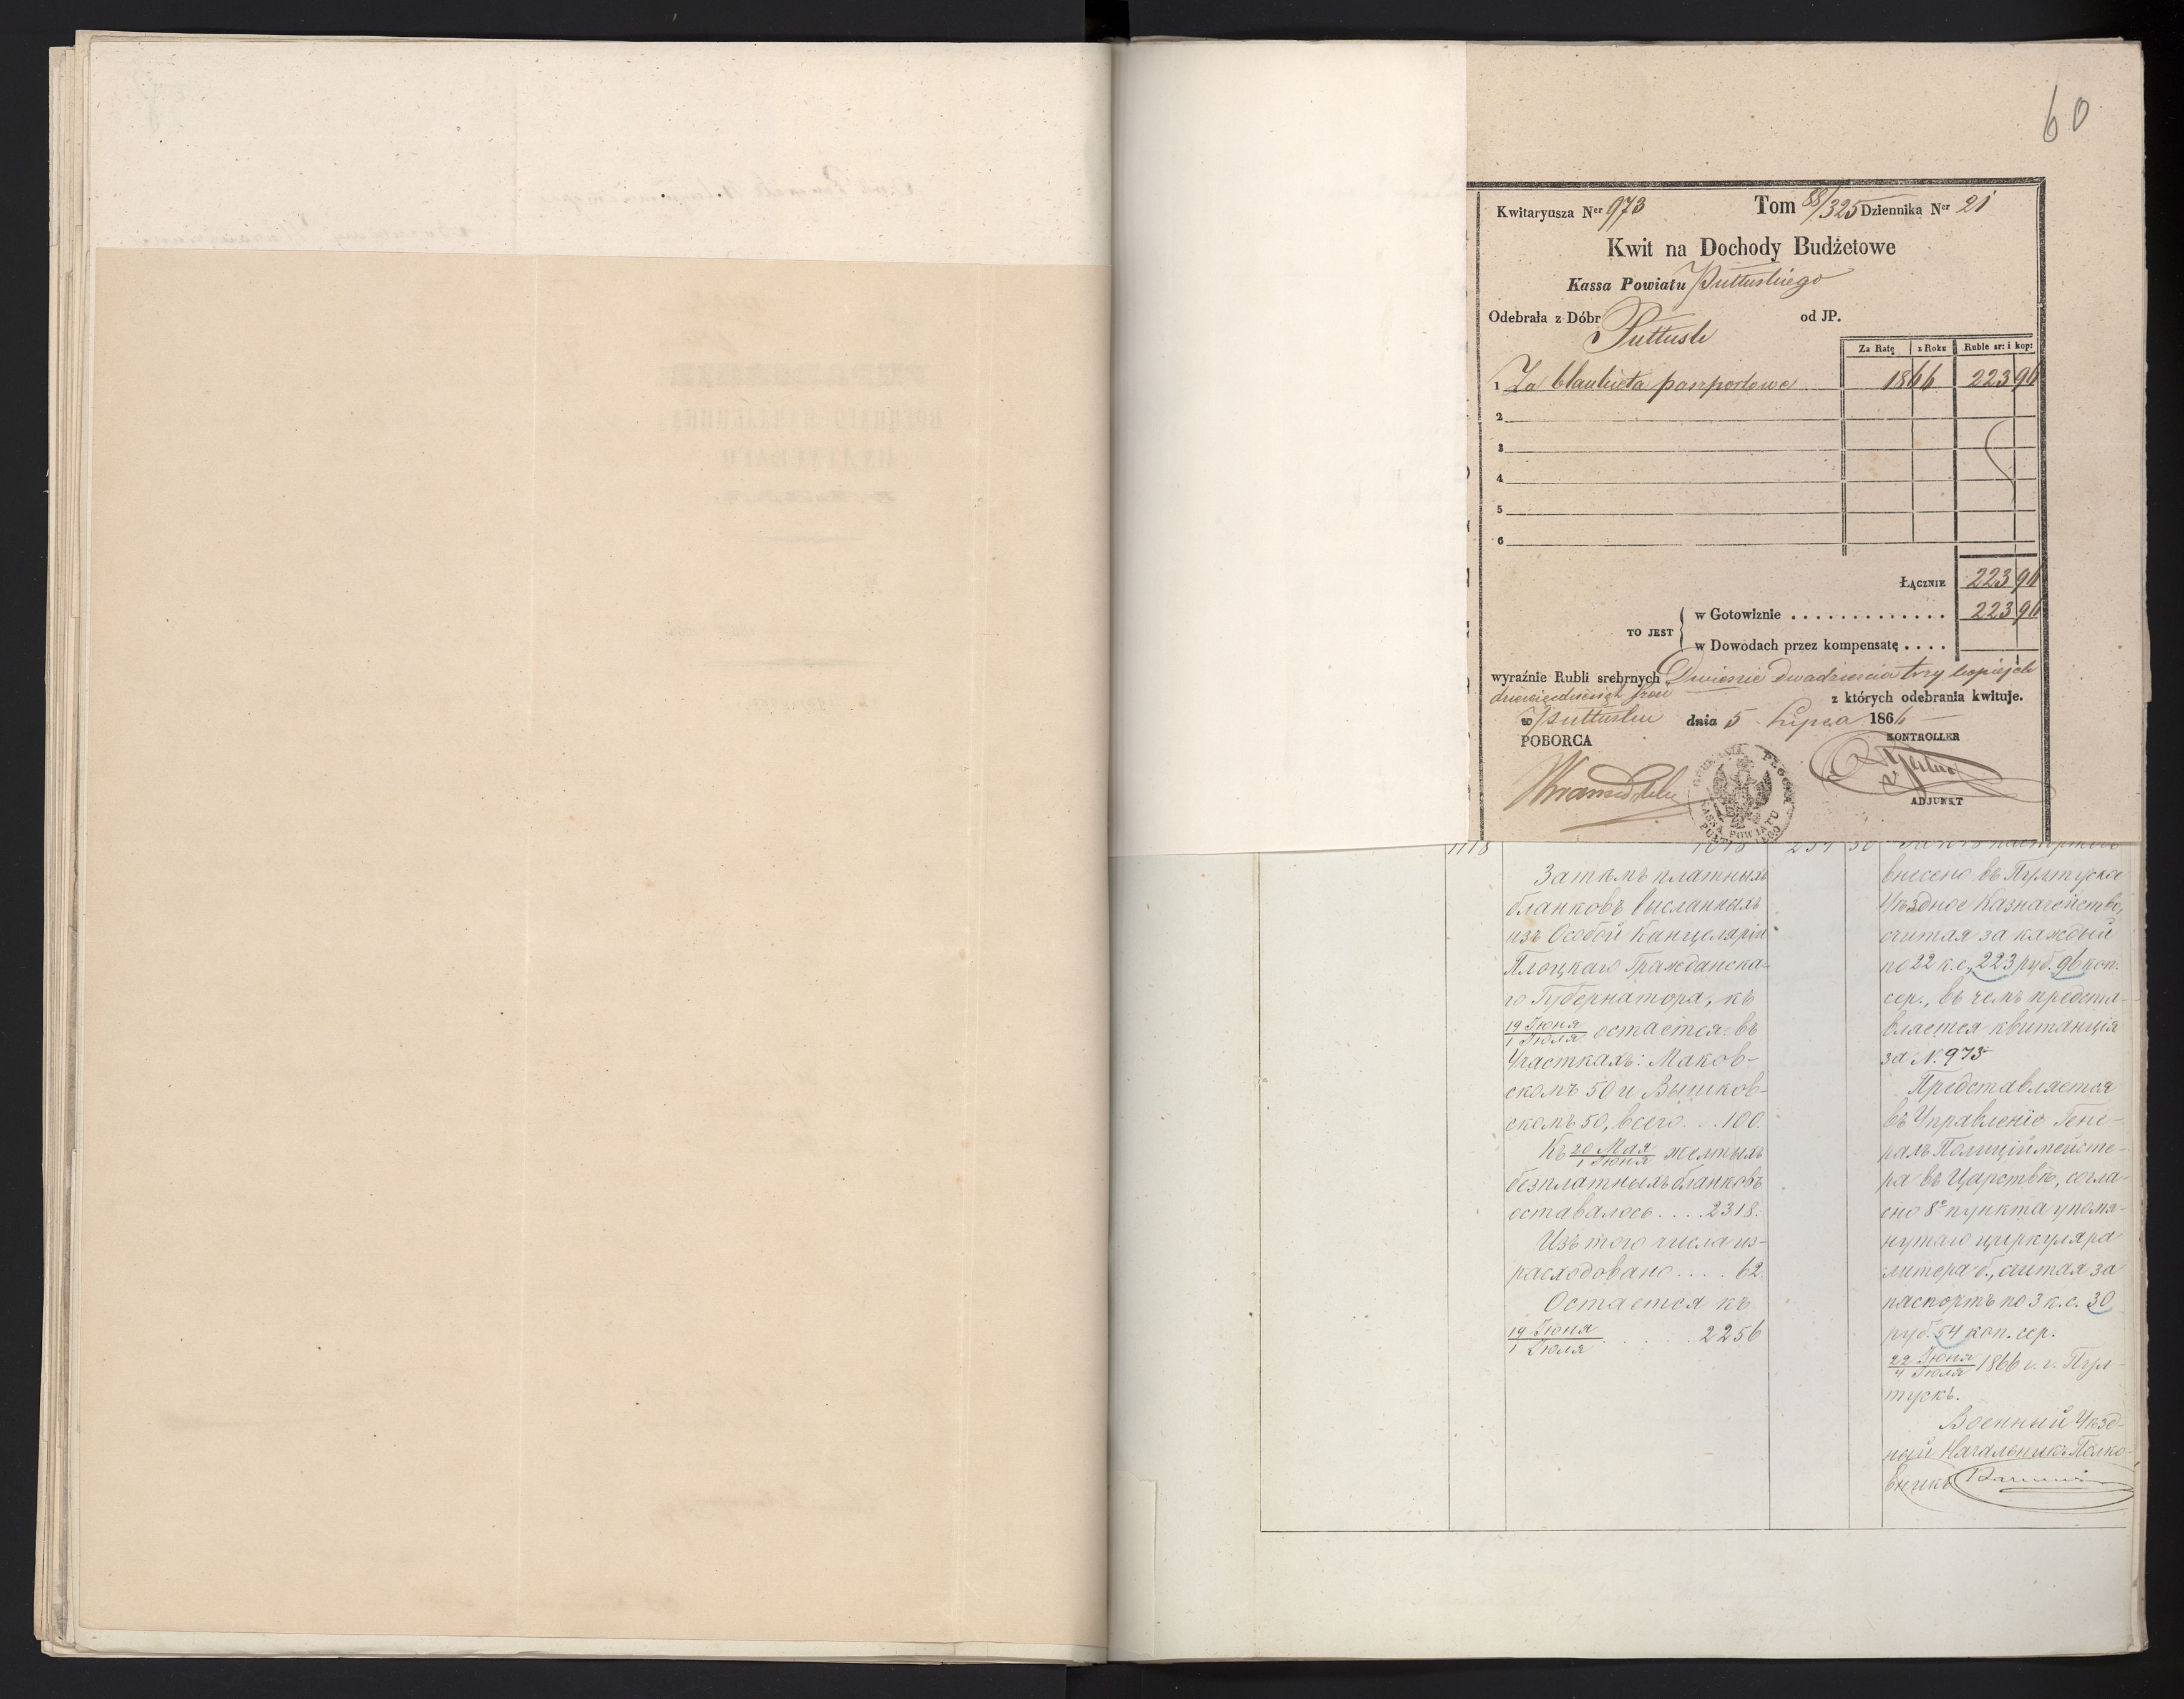 60
Kwitaryusza Ner 973 Tom 88/325 Dziennika Ner 21
Kwit na Dochody Budżetowe
Kassa Powiatu Pułtuskiego
Odebrała z Dóbr Pułtusk od JP.
Za Ratę z Roku Ruble sr: i kop:
1 Za blankieta paszportowe 1866 223 96
2
3
4
5
6
ŁĄCZNIE 223 96
w Gotowiznie . . . . . . . . . . . . . . 223 96
TO JEST
w Dowodach przez kompensatę . . . .
wyraźnie Rubli srebrnych Dwieście dwadzieścia trzy kopiejek
dziewięćdziesiąt sześć z których odebrania kwituje.
w Pułtusku dnia 5 Lipca 1866
POBORCA KONTROLLER
ADJUNKT
KASSA POWIATU
1118
Затѣмъ платныхъ
бланковъ высланныхъ
изъ Особой Канцеляріи
Плоцкаго Гражданска-
го Губернатора, къ
19 Іюня/1 Іюля остается въ
Участкахъ: Маков-
скомъ 50 и Вышков-
скомъ 50, всего . . . 100.
Къ 20 Мая/1 Іюня желтыхъ
безплатныхъ бланковъ
оставалось . . . . 2318.
Изъ того числа из-
расходовано . . . . 62.
Остается къ
19 Іюня/1 Іюля . . . . . 2256
внесено въ Пултуское
Уѣздное Казначейство,
считая за каждый
по 22 к.с., 223 руб. 96 коп.
сер., въ чемъ предста-
вляется квитанція
за N. 973
Представляется
въ Управленіе Гене-
ралъ Полиціймейсте-
ра въ Царствѣ, согла-
сно 8º пункта упомя-
нутаго циркуляра
литера б., считая за
паспортъ по 3 к.с. 30
руб. 54 коп. сер.
22 Іюня/4 Іюля 1866 г. г. Пул-
тускъ.
Военный Уѣзд-
ный Начальникъ Полко-
вникъ